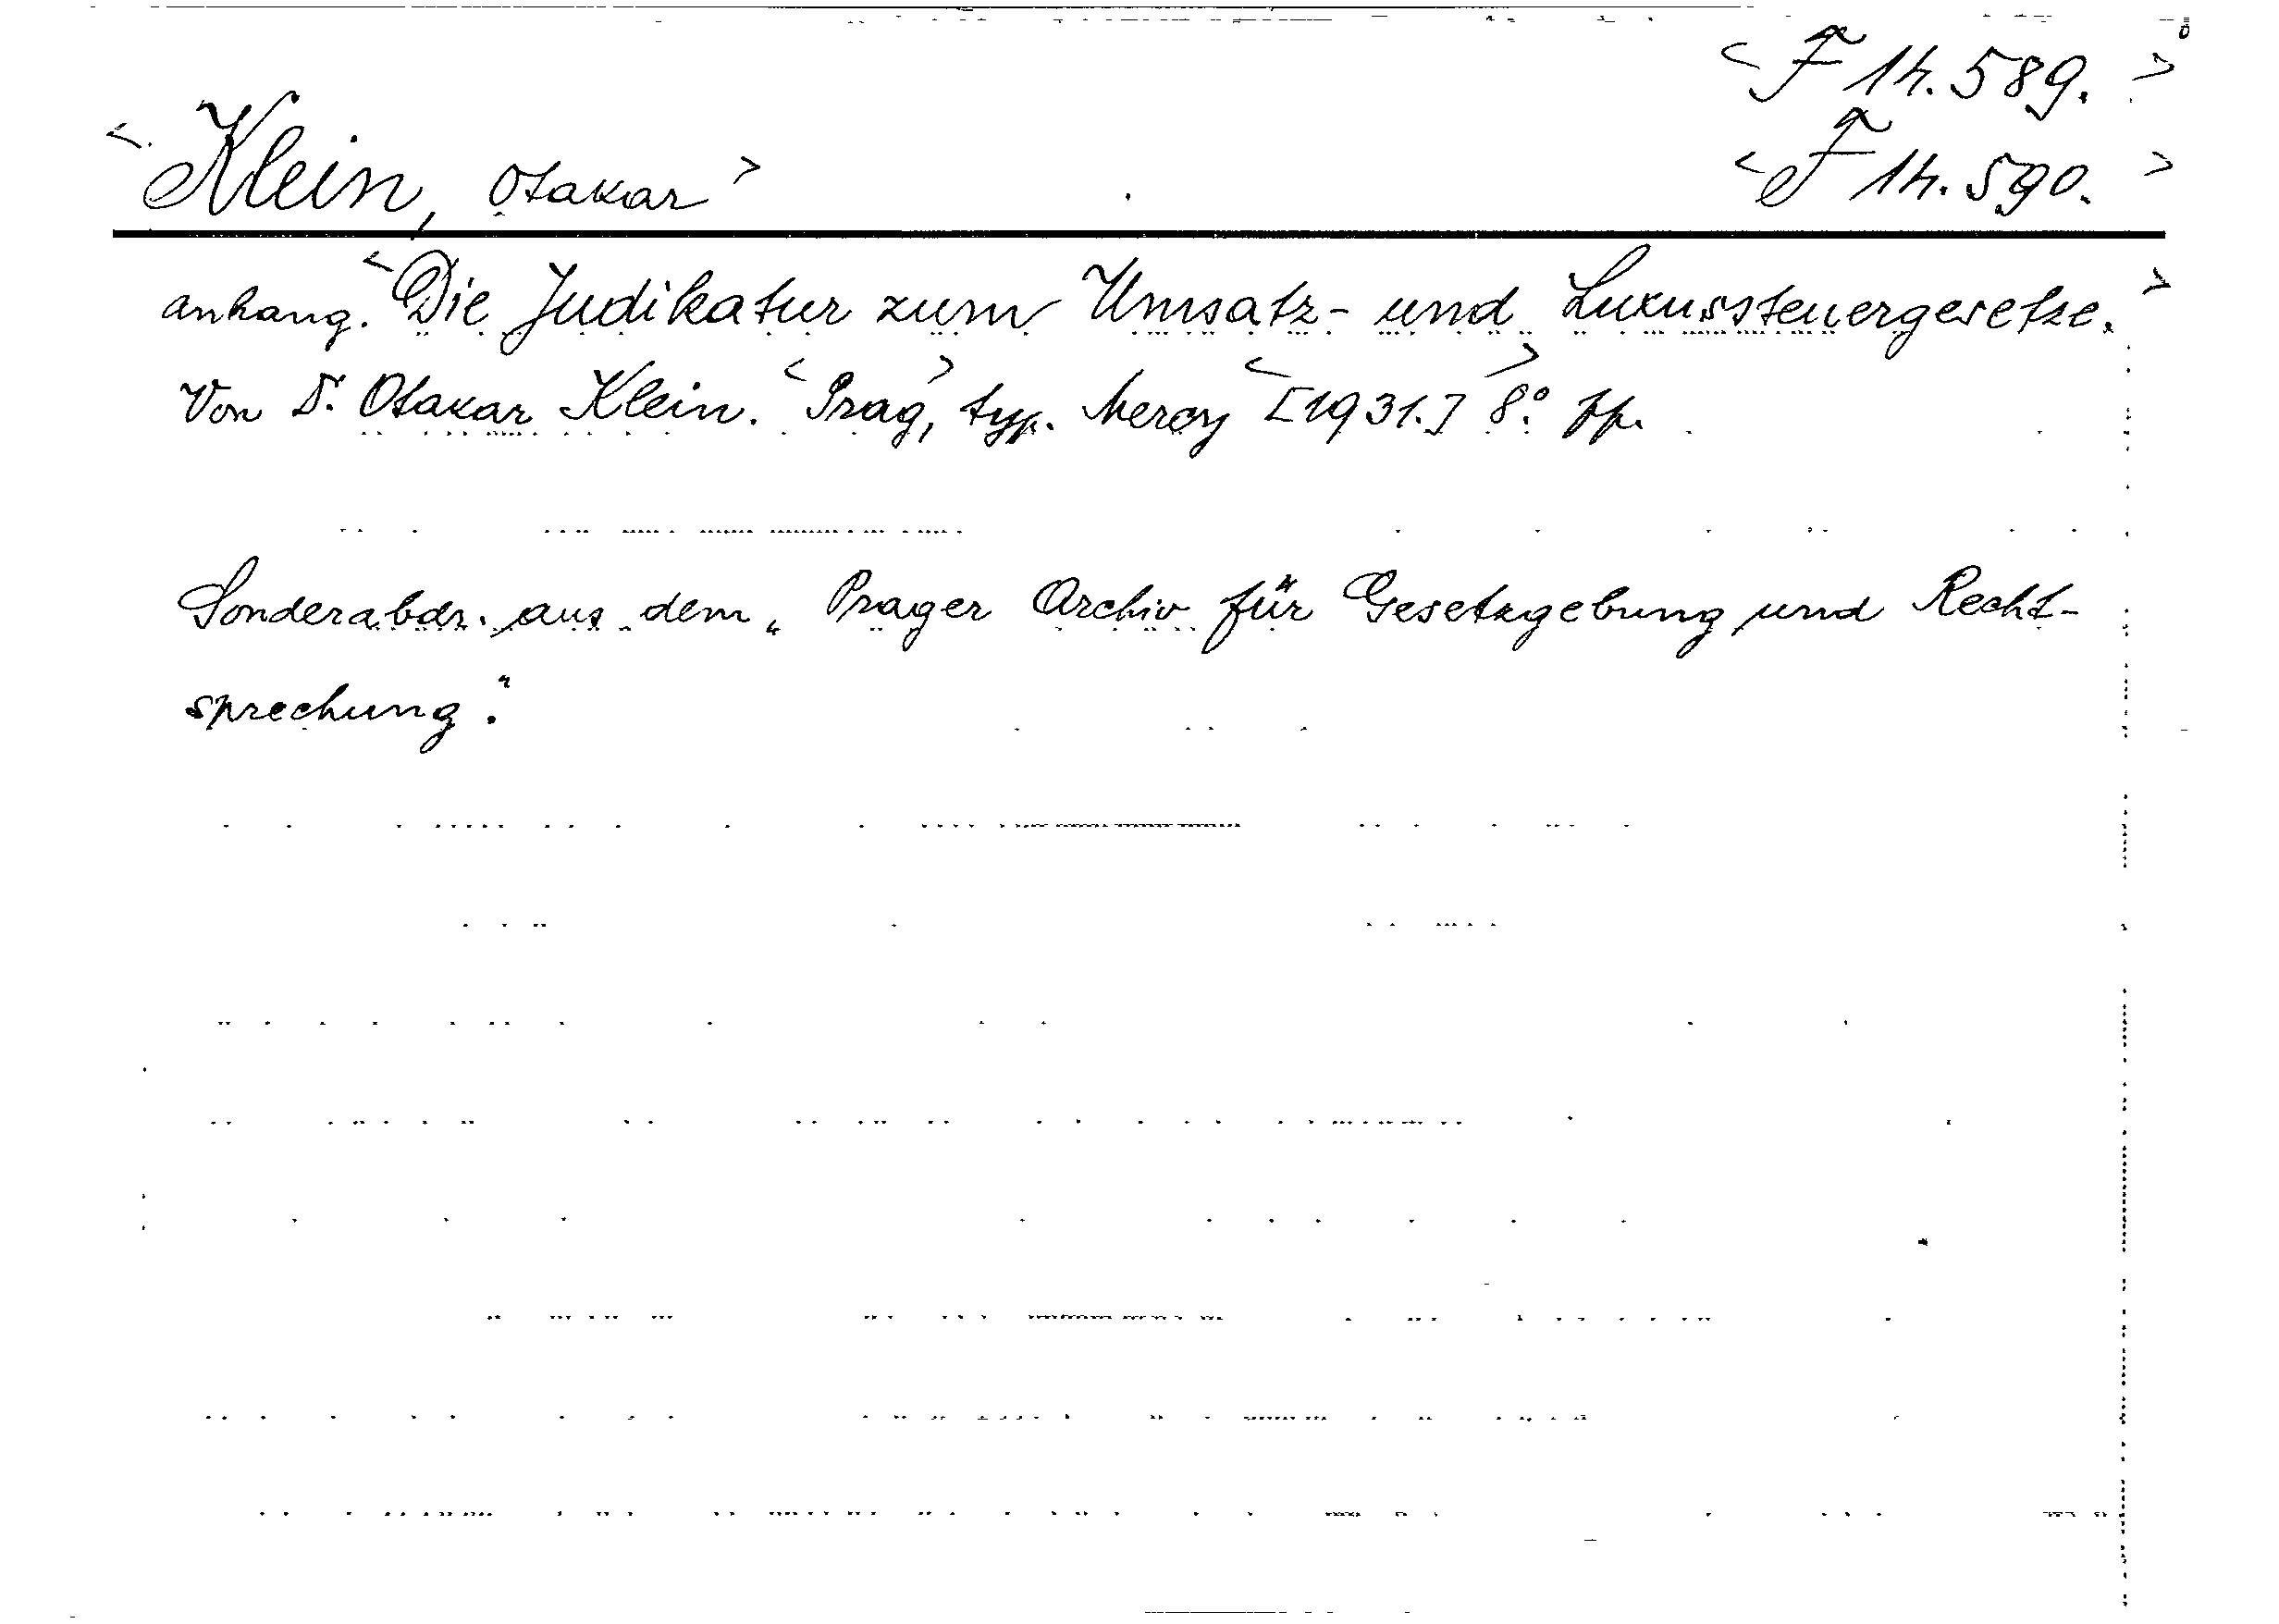 < F 14.589. >
< F 14.590. >
< Klein, Otakar >
anhang. < Die Judikatur zum Umsatz- und Luxussteuergesetze. >
Von Dr. Otakar Klein. < Prag, > typ. Mercy < [1931.] > 8.°
Sonderabdr. aus dem „Prager Archiv für Gesetzgebung und Recht-
sprechung."